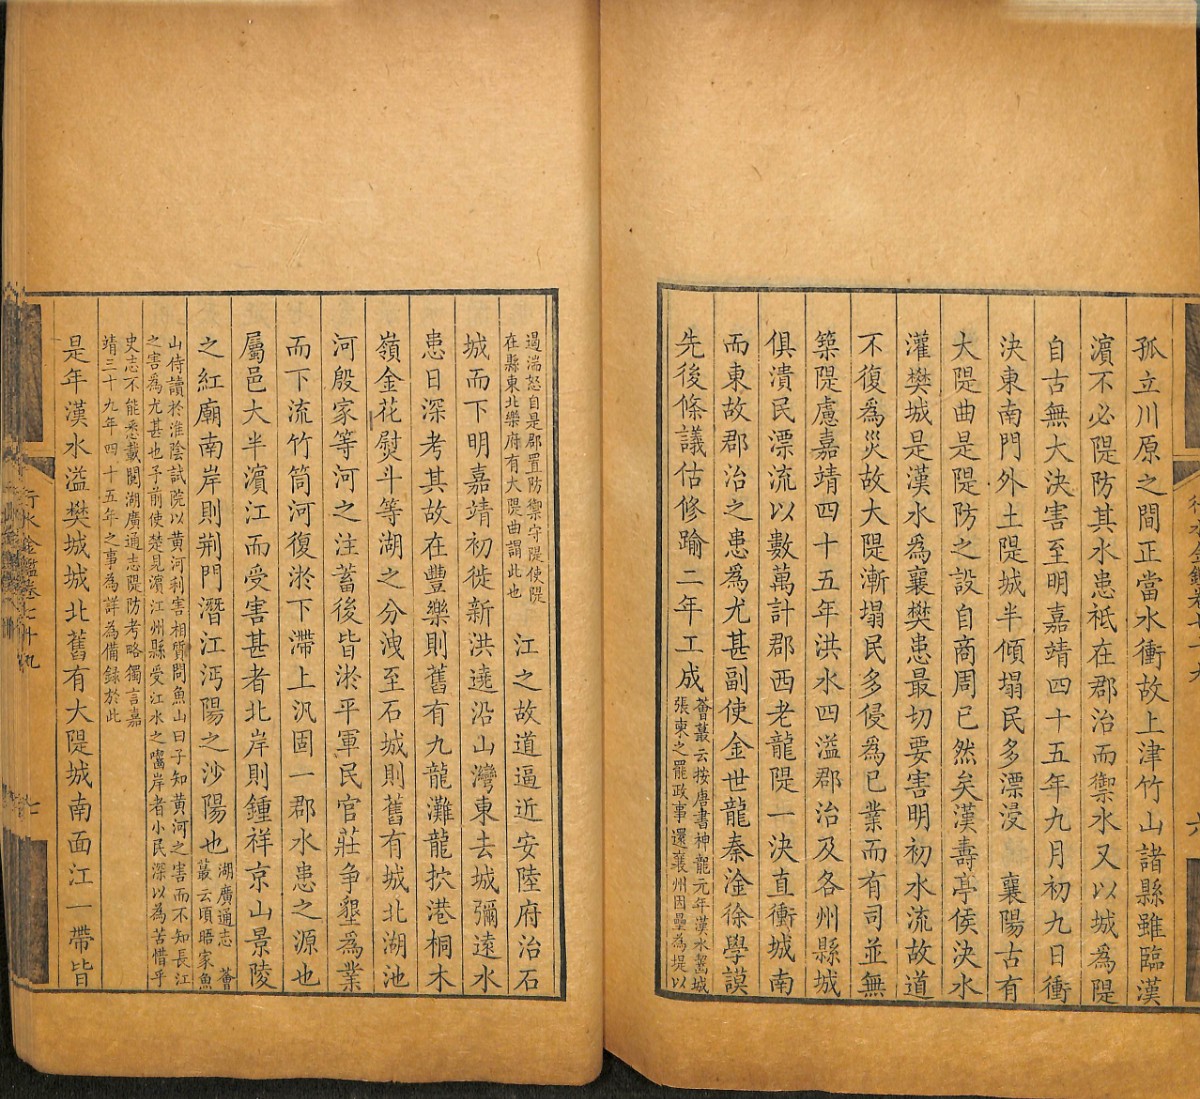 孤立川原之間正當水衝故上津竹山諸縣雖臨漢
濵不必隄防其水患祇在郡治而禦水又以城爲隄
自古無大決害至明嘉靖四十五年九月初九日衝
決東南門外土隄城半傾塌民多漂浸　襄陽古有
大隄曲是隄防之設自商周已然矣漢壽亭侯決水
灌樊城是漢水爲襄樊患最切要害明初水流故道
不復爲災故大隄漸塌民多侵爲已業而有司並無
築隄慮嘉靖四十五年洪水四溢郡治及各州縣城
俱潰民漂流以數萬計郡西老龍隄一決直衝城南
而東故郡治之患爲尤甚副使金世龍秦淦徐學謨
先後條議估修踰二年工成
薈蕞云按唐書神龍元年漢水嚙城
張柬之罷政事還襄州因壘為堤以
過湍怒自是郡置防禦守隄使隄
在縣東北樂府有大隄曲謂此也
江之故道逼近安陸府治石
城而下明嘉靖初徙新洪遶沿山灣東去城彌遠水
患日深考其故在豐樂則舊有九龍灘龍㧁港桐木
嶺金花熨斗等湖之分洩至石城則舊有城北湖池
河殷家等河之注蓄後皆淤平軍民官莊争墾爲業
而下流竹筒河復淤下滯上汎固一郡水患之源也
屬邑大半濵江而受害甚者北岸則鍾祥京山景陵
之紅廟南岸則荆門潛江沔陽之沙陽也
湖廣通志　薈
蕞云頃晤家魚
山侍讀於淮陰試院以黄河利害相質問魚山曰子知黄河之害而不知長江
之害為尤甚也予前使楚見濵江州縣受江水之嚙岸者小民深以為苦惜乎
史志不能悉載閲湖廣通志隄防考略獨言嘉
靖三十九年四十五年之事為詳為備録於此
是年漢水溢樊城城北舊有大隄城南面江一帶皆
行水金鑑卷七十九
七